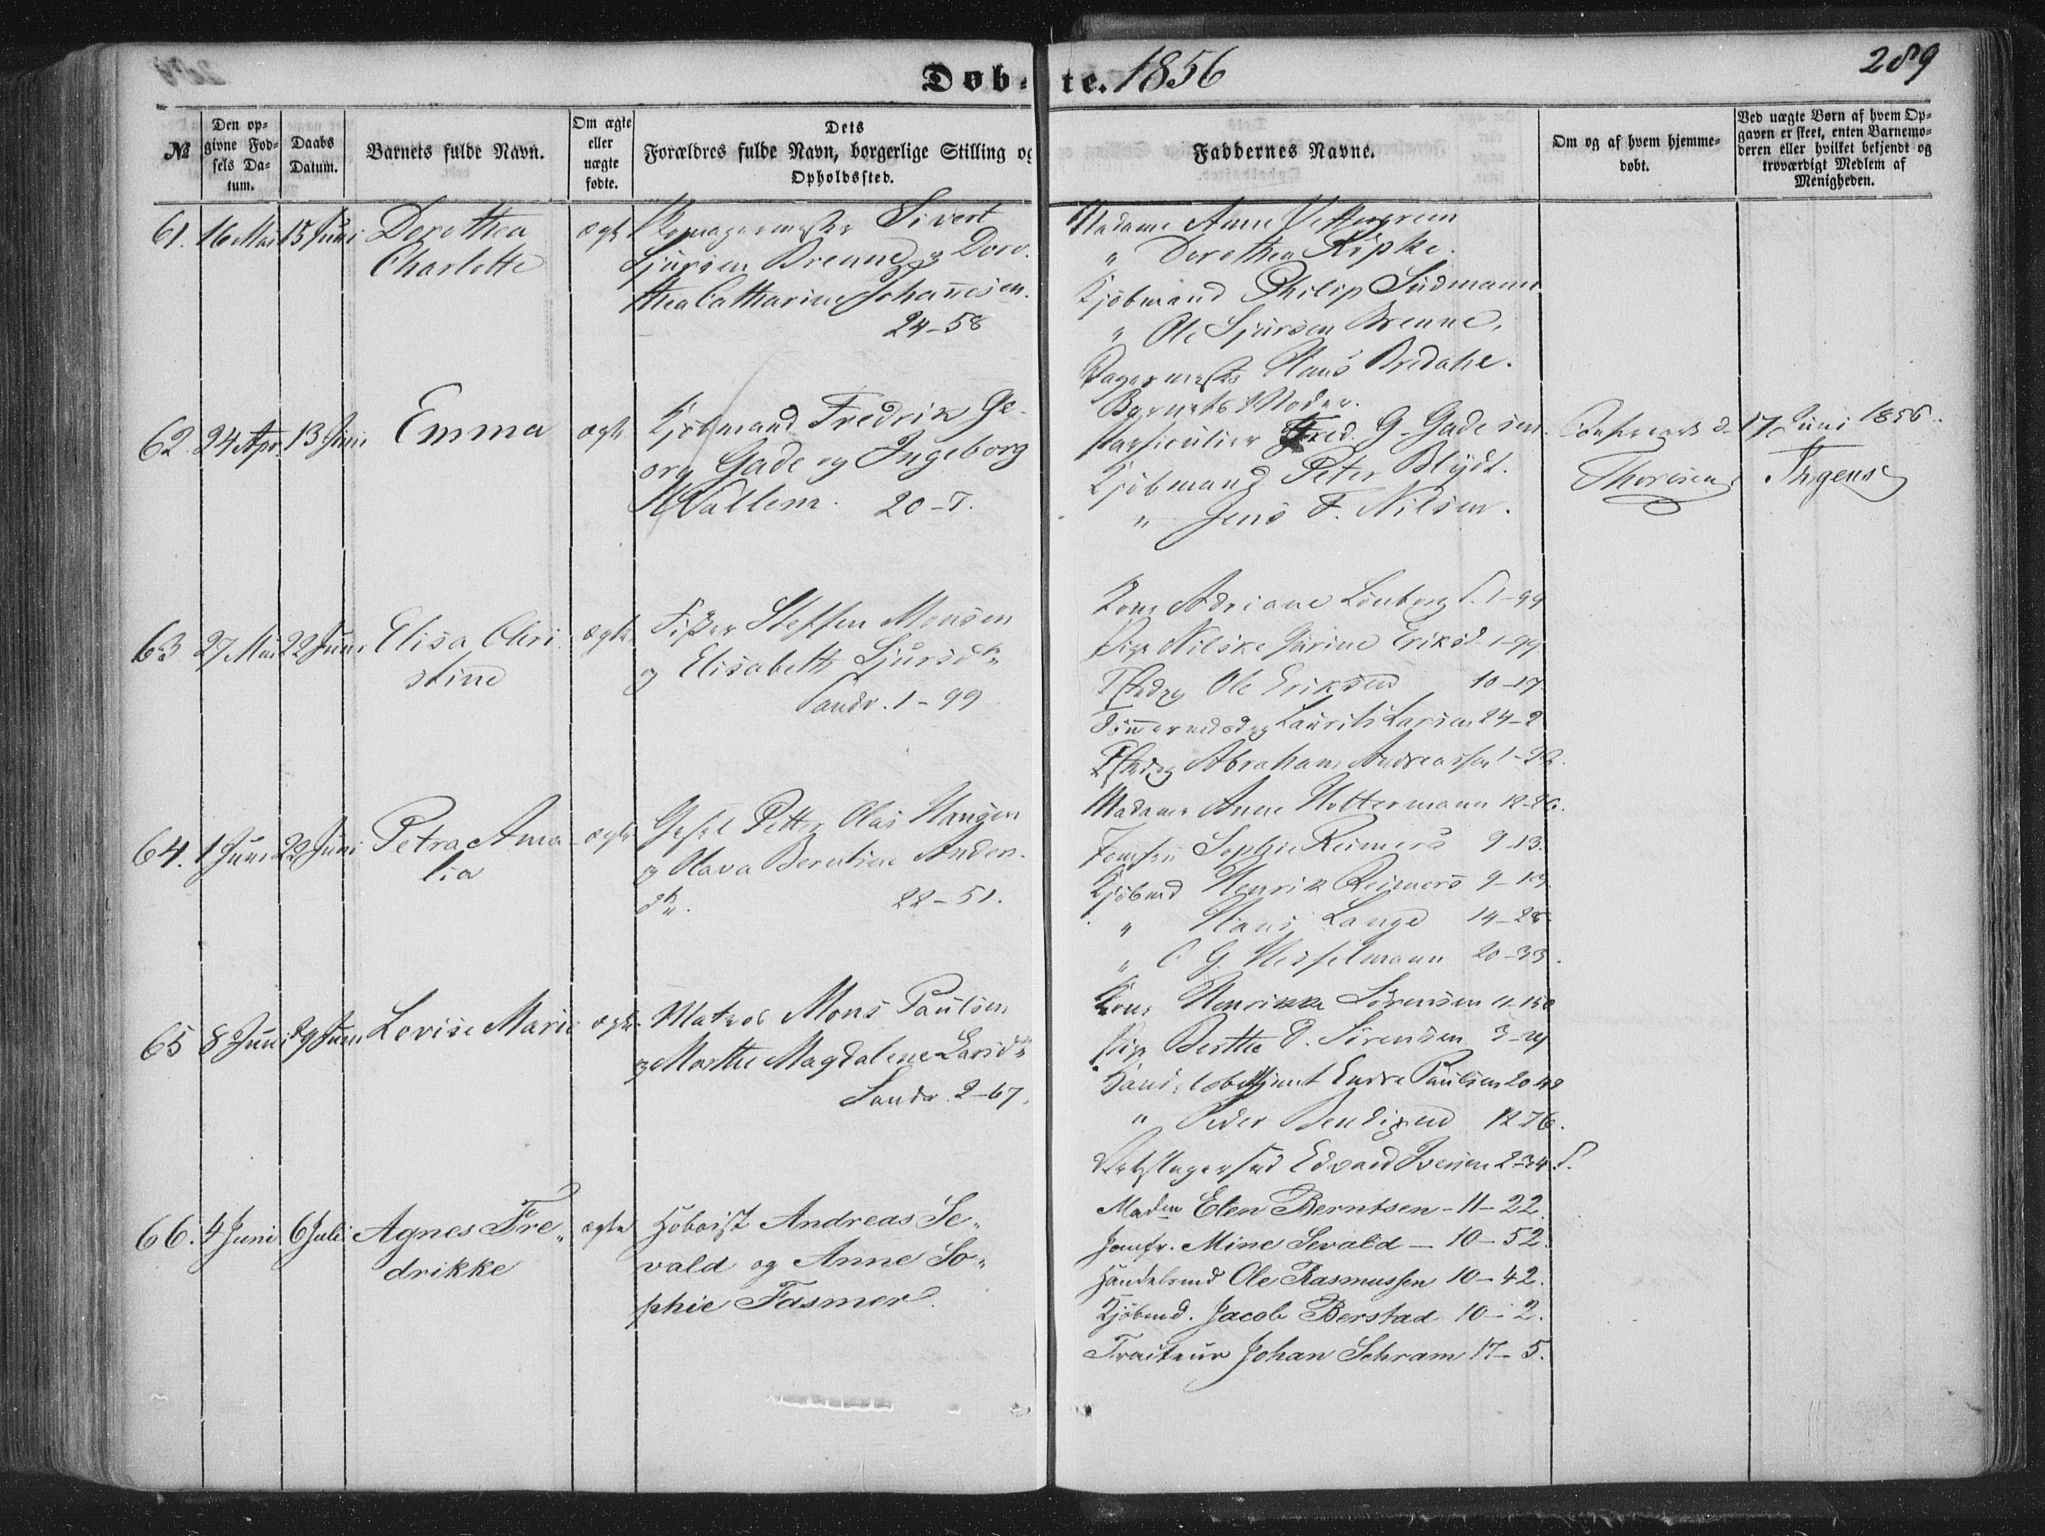 Døbte. 1856
289
№
Den opgivne Fødsels Datum.
Daabs Datum.
Barnets fulde Navn.
Om ægte eller uægte fødte.
Dets Forældres fulde Navn, borgerlige Stilling og Opholdssted.
Faddernes Navne.
Om og af hvem hjemmedøbt.
Ved uægte Børn af hvem Opgaven er skeet, enten Barnemoderen eller hvilket bekjendt og troværdigt Medlem af Menigheden.
61. 16 Mai 15 Juni Dorothea
Charlotte
ægte
Sivert
Sjursen Brenne og Doro-
thea Catharine Johannesen.
24-58
Madame Anne
" Dorothea Ripke.
Kjøbmand Philip Südmann
" Ole Sjursen Brenne.
Claus Bredahl.
Barnets Moder.
62. 24 Apr. 13 Juni Emma
ægte
Kjøbmand Fredrik Ge-
org Gade og Ingeborg
Wallem. 20-7.
Particulier Fred. G. Gade sen.
Kjøbmand Peter Blydt.
" Jens F. Nilsen.
17 Juni 1856.
Thoresen
63 27 Mai 22 Juni Elisa Chri
stine
ægte
Fisker Steffen Monsen
og Elisabeth Sjursdr
Sandv. 1-99
Kone Adriane Lønborg S. 1-99
Pige Nilske Jørine Eriksd. 1-99
Ole Eriksen 10-17
Laurits Larsen 24-2
Abraham Andreassen 1-26.
64. 1 Juni 22 Juni Petra Ama
lia
ægte
Petter Olai Haugen
og Olava Berntine Anders
dr. 22-51.
Madame Anne Holtermann 12-26.
Jomfru Sophie Reimers 9-13.
Kjøbmd Henrik Reimers 9-13
" Hans Lange 14-28
" C G Hesselmann 20-33.
65 8 Juni 29 Juni Lovise Marie
ægte
Matros Mons Paulsen
og Marthe Magdalene Larsdr
Sandv. 2-67.
Kone Henrikke Sørensen 11-150
Pige Berthe D. Sørensen 3-24
Endre Paulsen 20-48
" Peder Bendixen 12-76.
Edvard Iversen 2-34 S.
66. 4 Juni 6 Juli Agnes Fre-
drikke
ægte
Hoboist Andreas Se-
vald og Anne So-
phie Fasmer.
Madm Elen Berntsen - 11-22.
Jomfr. Mine Sevald - 10-52.
Handelsmd Ole Rasmussen 10-42.
Kjøbmd. Jacob Berstad 10-2.
Tracteur Johan Schram 17-5.